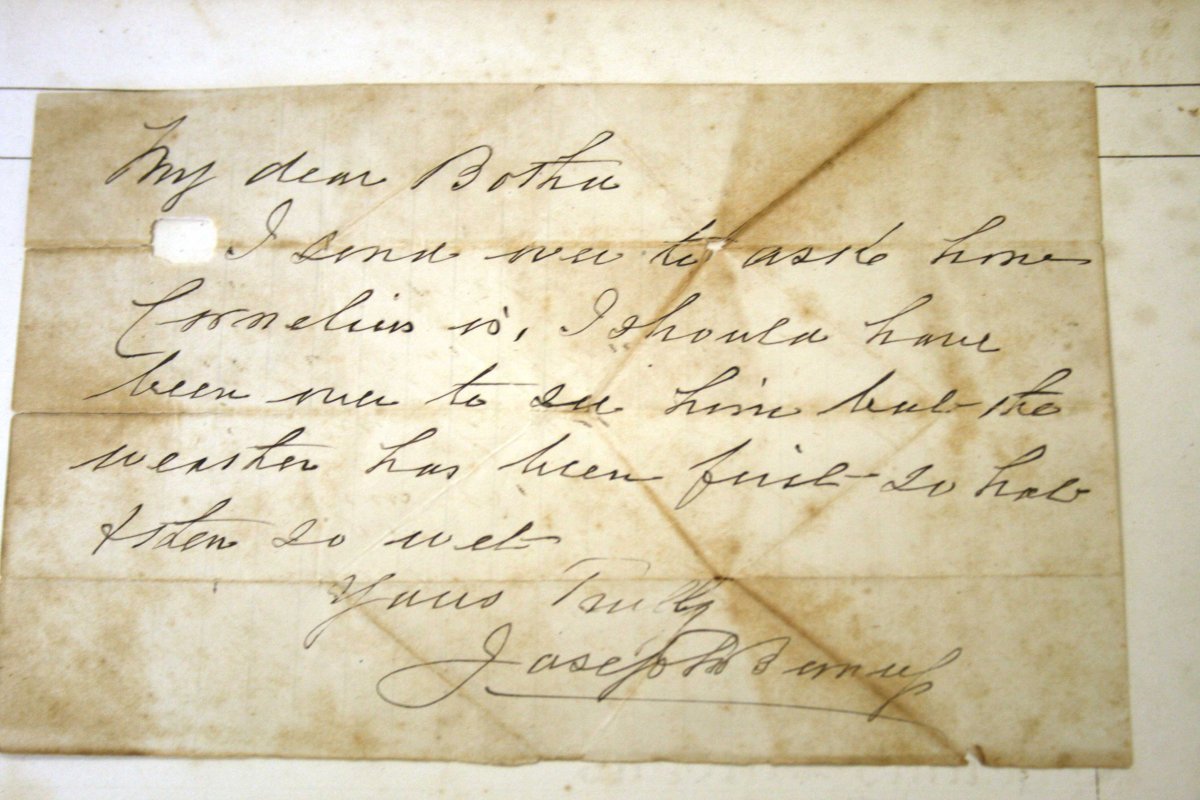 My dear Botha
I send over to ask how
Cornelius is, I should have
been over to see him but the
weather has been first so hot
& then so wet
Yours Truly
Joseph